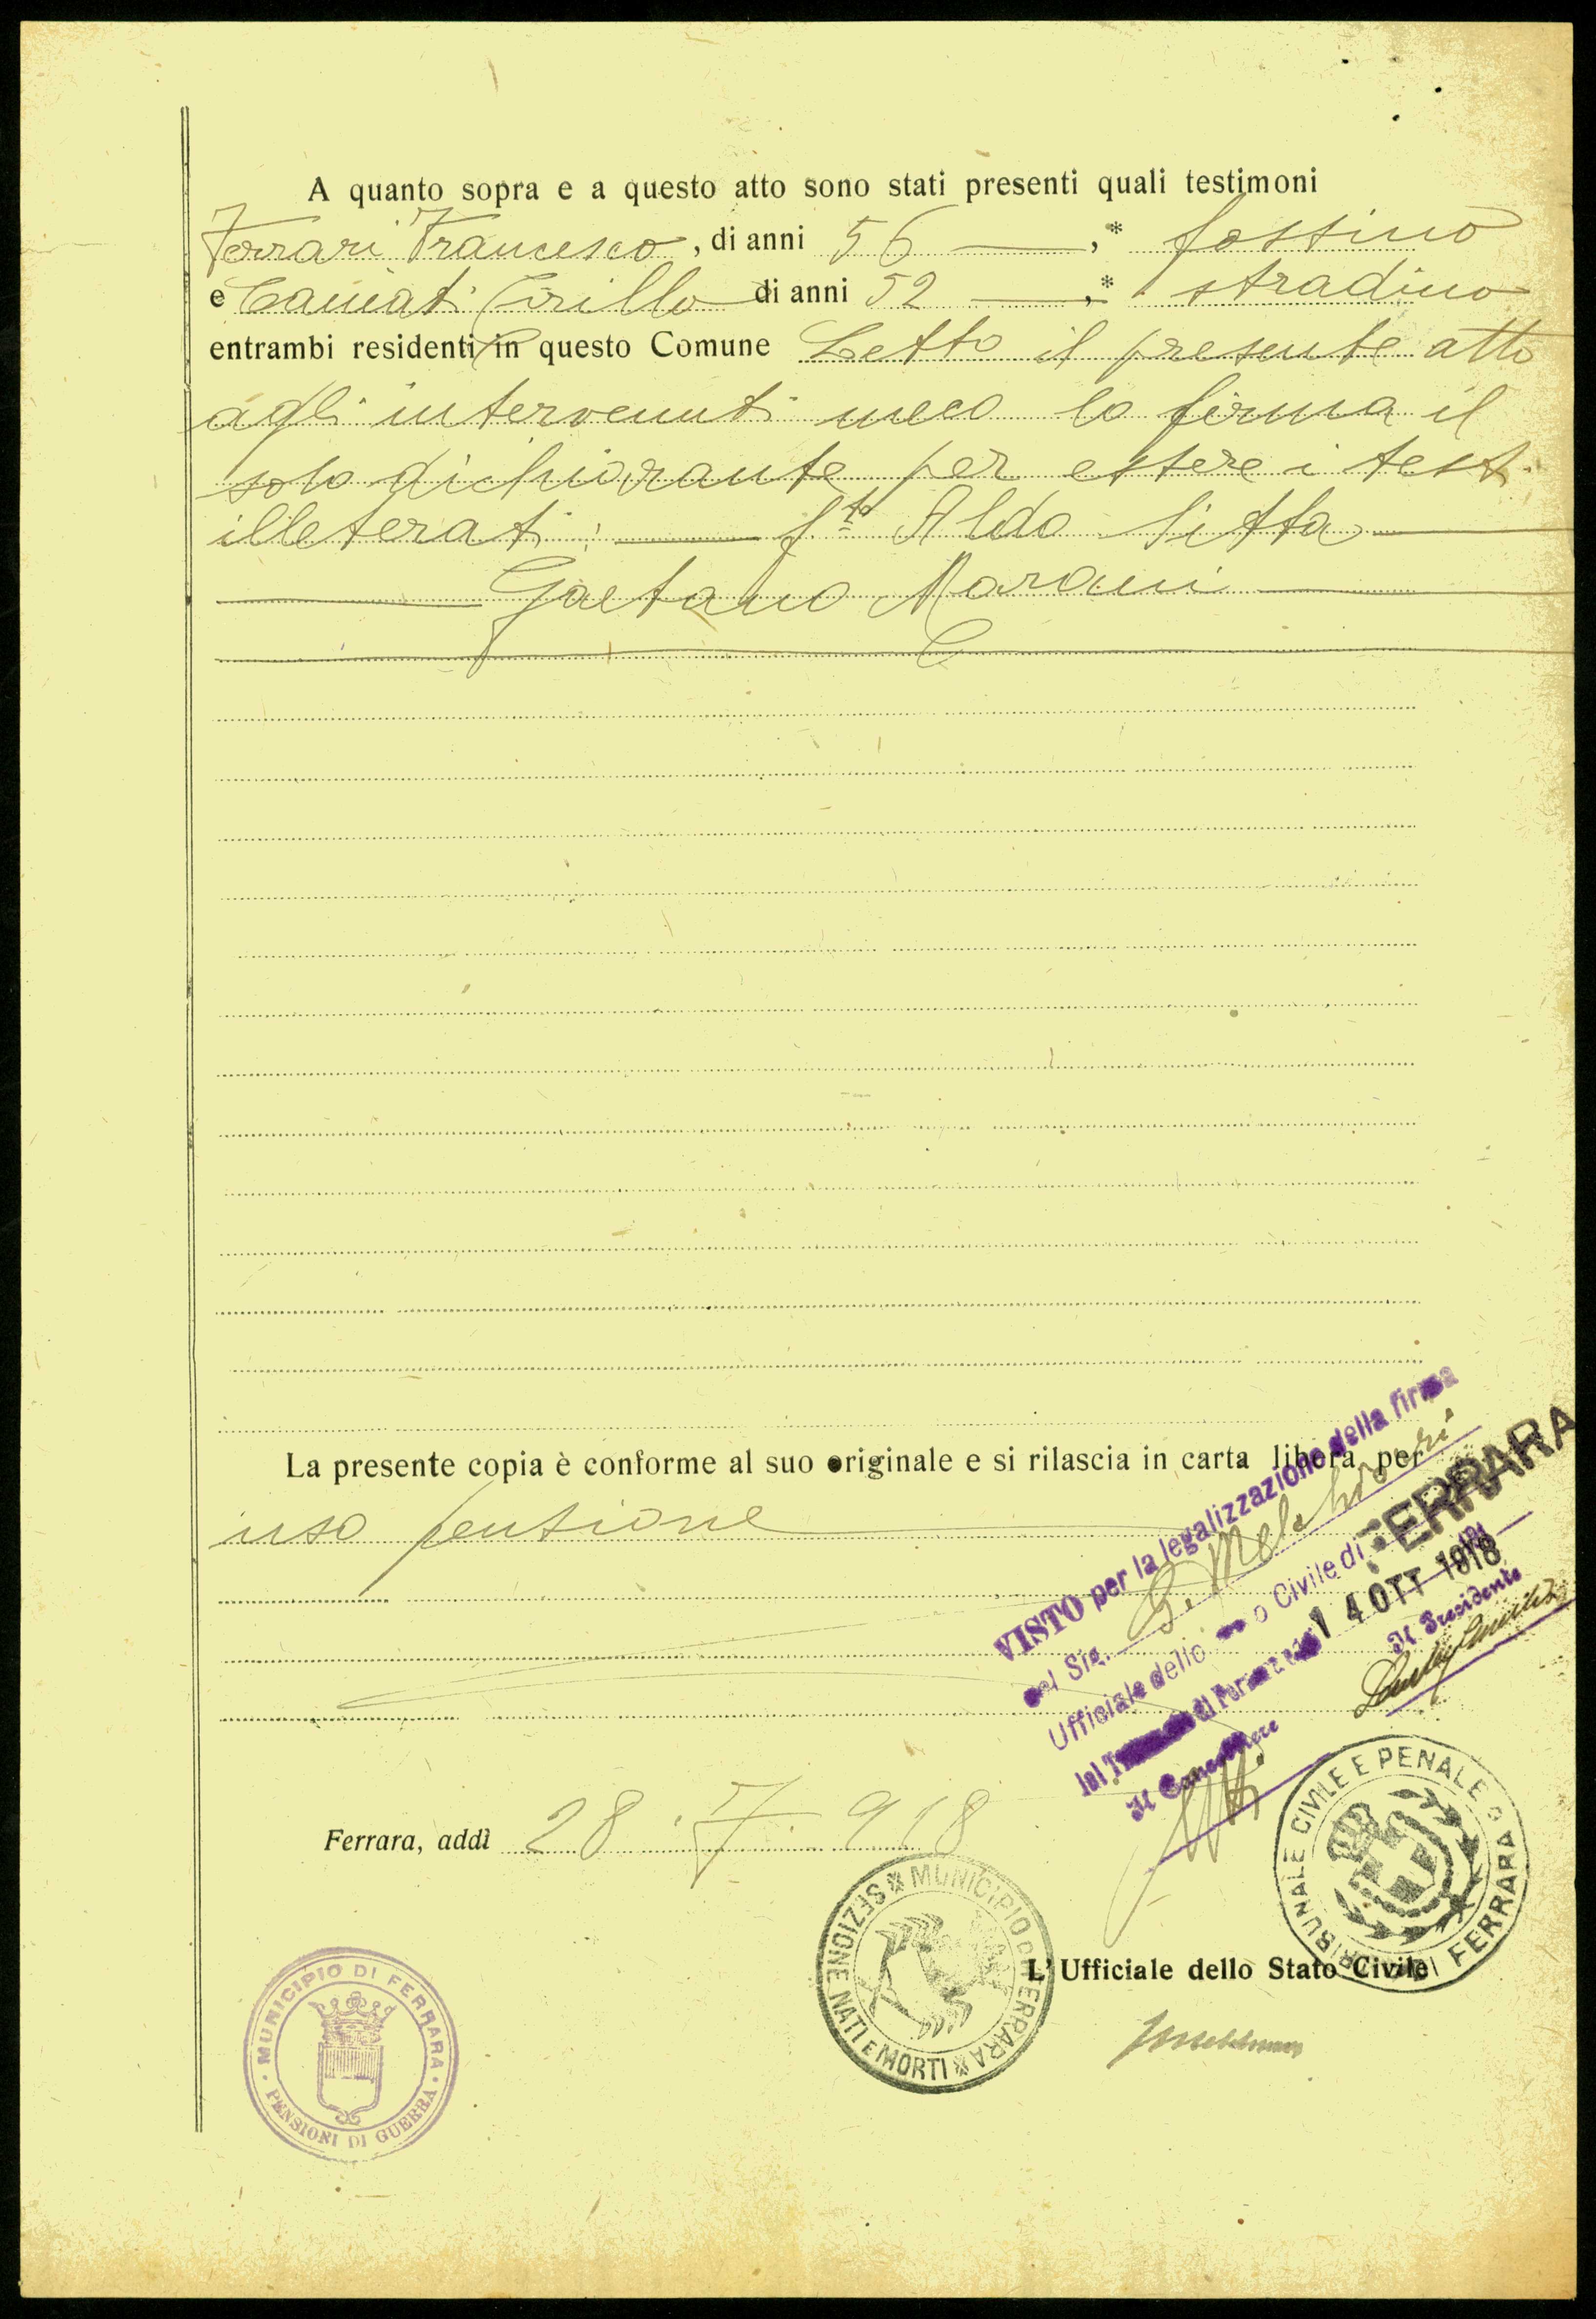 A quanto sopra e a questo atto sono stati presenti quali testimoni
Ferrari Francesco, di anni 56 —,* fossino
e Caniati Cirillo di anni 52 —,* stradino
entrambi residenti in questo Comune Letto il presente atto
agli intervenuti meco lo firma il
solo dichiarante per essere i testi
illeterati: — f.to Aldo Sitta —
— Gaetano Marani —
La presente copia è conforme al suo originale e si rilascia in carta libera per
uso pensione
VISTO per la legalizzazione della firma
del Sig. G. Melchiorri
Ufficiale dello o Civile di FERRARA
di Ferrara 14 OTT 1918
Il Presidente
Il Cancelliere
Ferrara, addì 28.7.918
TRIBUNALE CIVILE E PENALE DI FERRARA
MUNICIPIO DI FERRARA
SEZIONE NATI E MORTI
L'Ufficiale dello Stato Civile
MUNICIPIO DI FERRARA
PENSIONI DI GUERRA